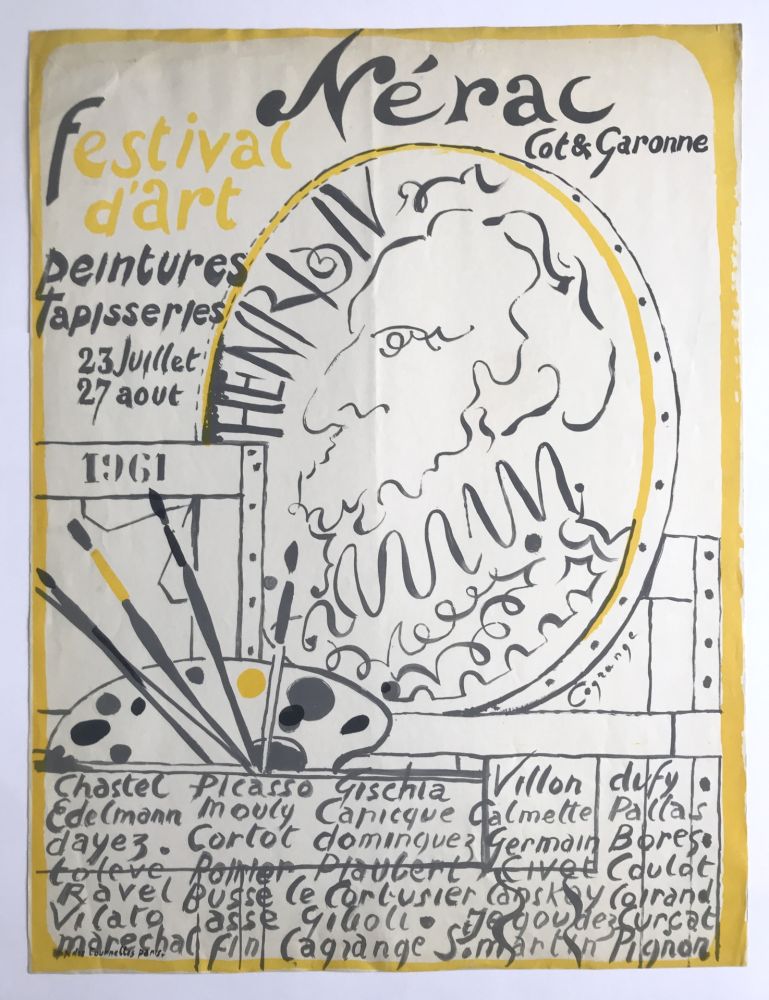 Nérac
Lot & Garonne
festival
d'art
peintures
tapisseries
23 Juillet
27 aout
HENRI IV
1961
Lagrange
Chastel Picasso Gischia Villon dufy
Edelmann Mouly Capicque Calmette Pallas
dayez. Cortot dominguez Germain Bores
Civet Coulot
Ravel Busse le Corbusier Lanskoy Coirand
Vilato asse Gilioli Lurçat
marechal fin Lagrange St. martin Pignon
tournelles paris.